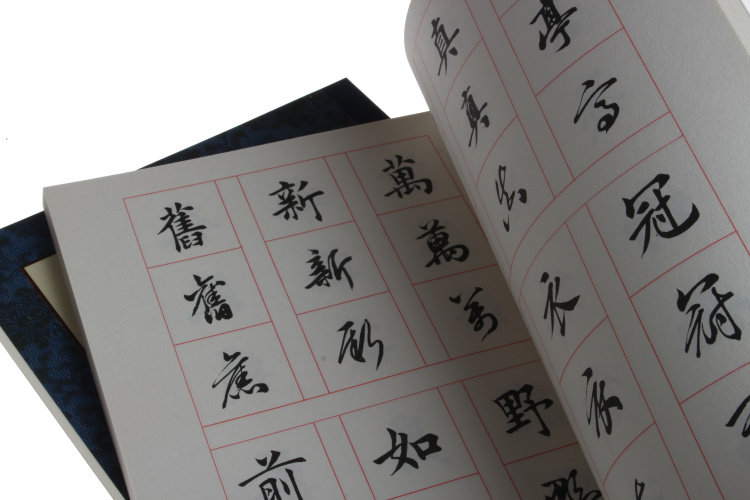 亭
真真真
冠冠
衣衣
萬萬萬
新新新
舊舊舊
野野
如
前